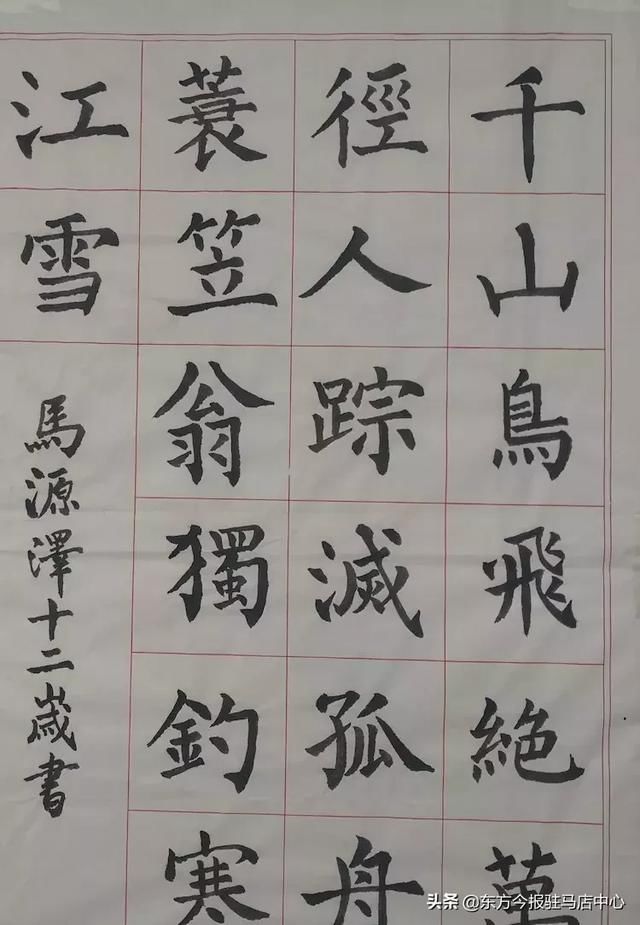 千山鳥飛絶萬
徑人踪滅孤舟
蓑笠翁獨釣寒
江雪
馬源澤十二歲書
头条 @东方今报驻马店中心